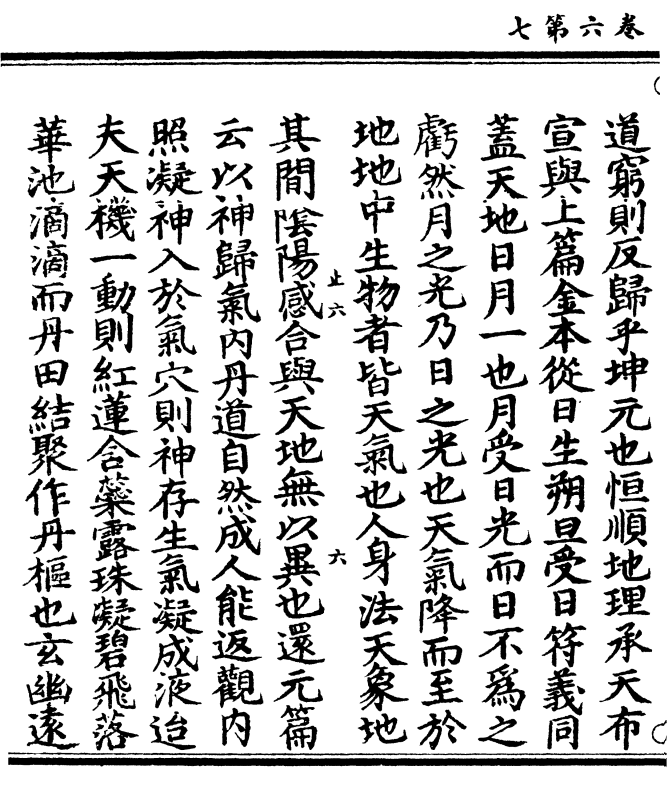 卷六第七
道窮則反歸乎坤元也恒順地理承天布
宣與上篇金本從日生朔旦受日符義同
蓋天地日月一也月受日光而日不爲之
虧然月之光乃日之光也天氣降而至於
地地中生物者皆天氣也人身法天象地
其間陰陽感合與天地無以異也還元篇
止六
六
云以神歸氣內丹道自然成人能返觀內
照凝神入於氣穴則神存生氣凝成液迨
夫天機一動則紅蓮含蘂露珠凝碧飛落
華池滴滴而丹田結聚作丹樞也玄幽遠